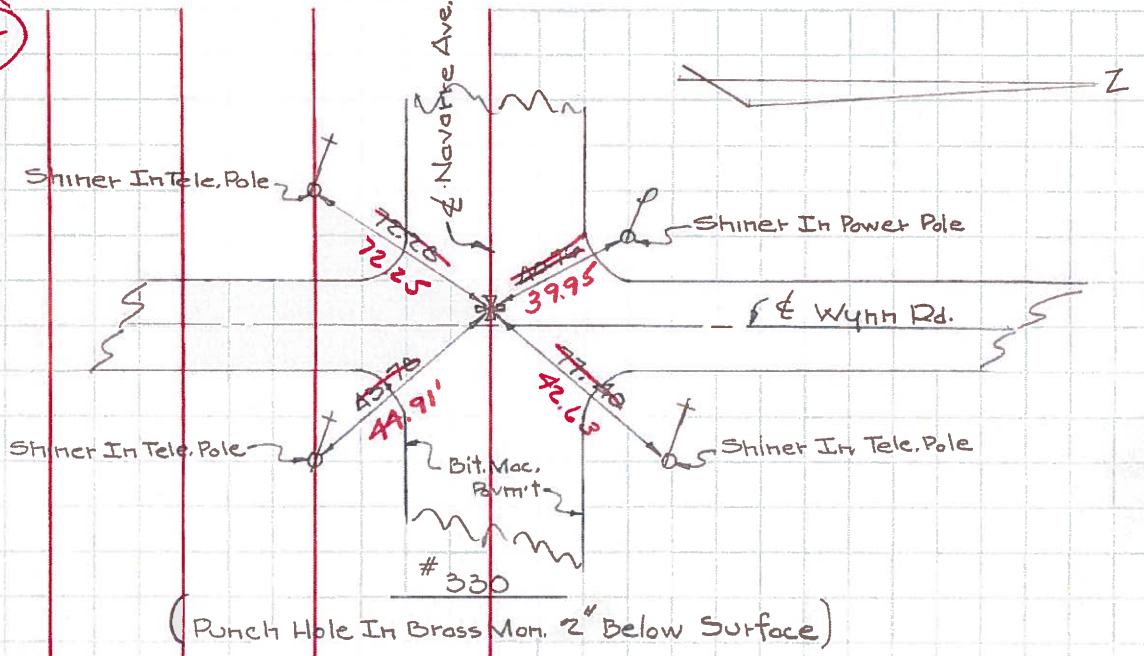 Z
℄ Navarre Ave.
Shiner In Tele. Pole
Shiner In Power Pole
72.20
72.25
39.95
℄ Wynn Rd.
43.70
44.91'
77.40
42.63
Shiner In Tele. Pole
Shiner In Tele. Pole
Bit. Mac.
Pavm't
# 330
(Punch Hole In Brass Mon. 2" Below Surface)